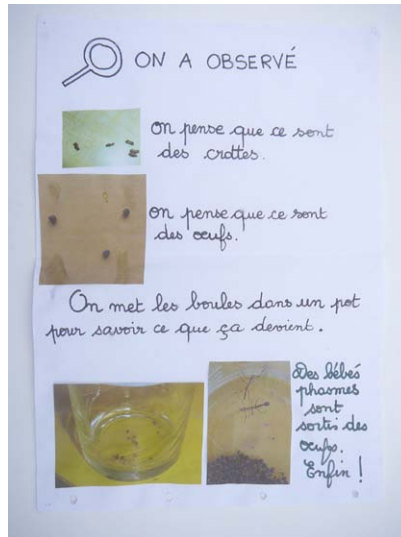 ON A OBSERVÉ
on pense que ce sont
des crottes.
on pense que ce sont
des œufs.
On met les boules dans un pot
pour savoir ce que ça devient.
Des bébés
phasmes
sont
sortis des
œufs.
Enfin !